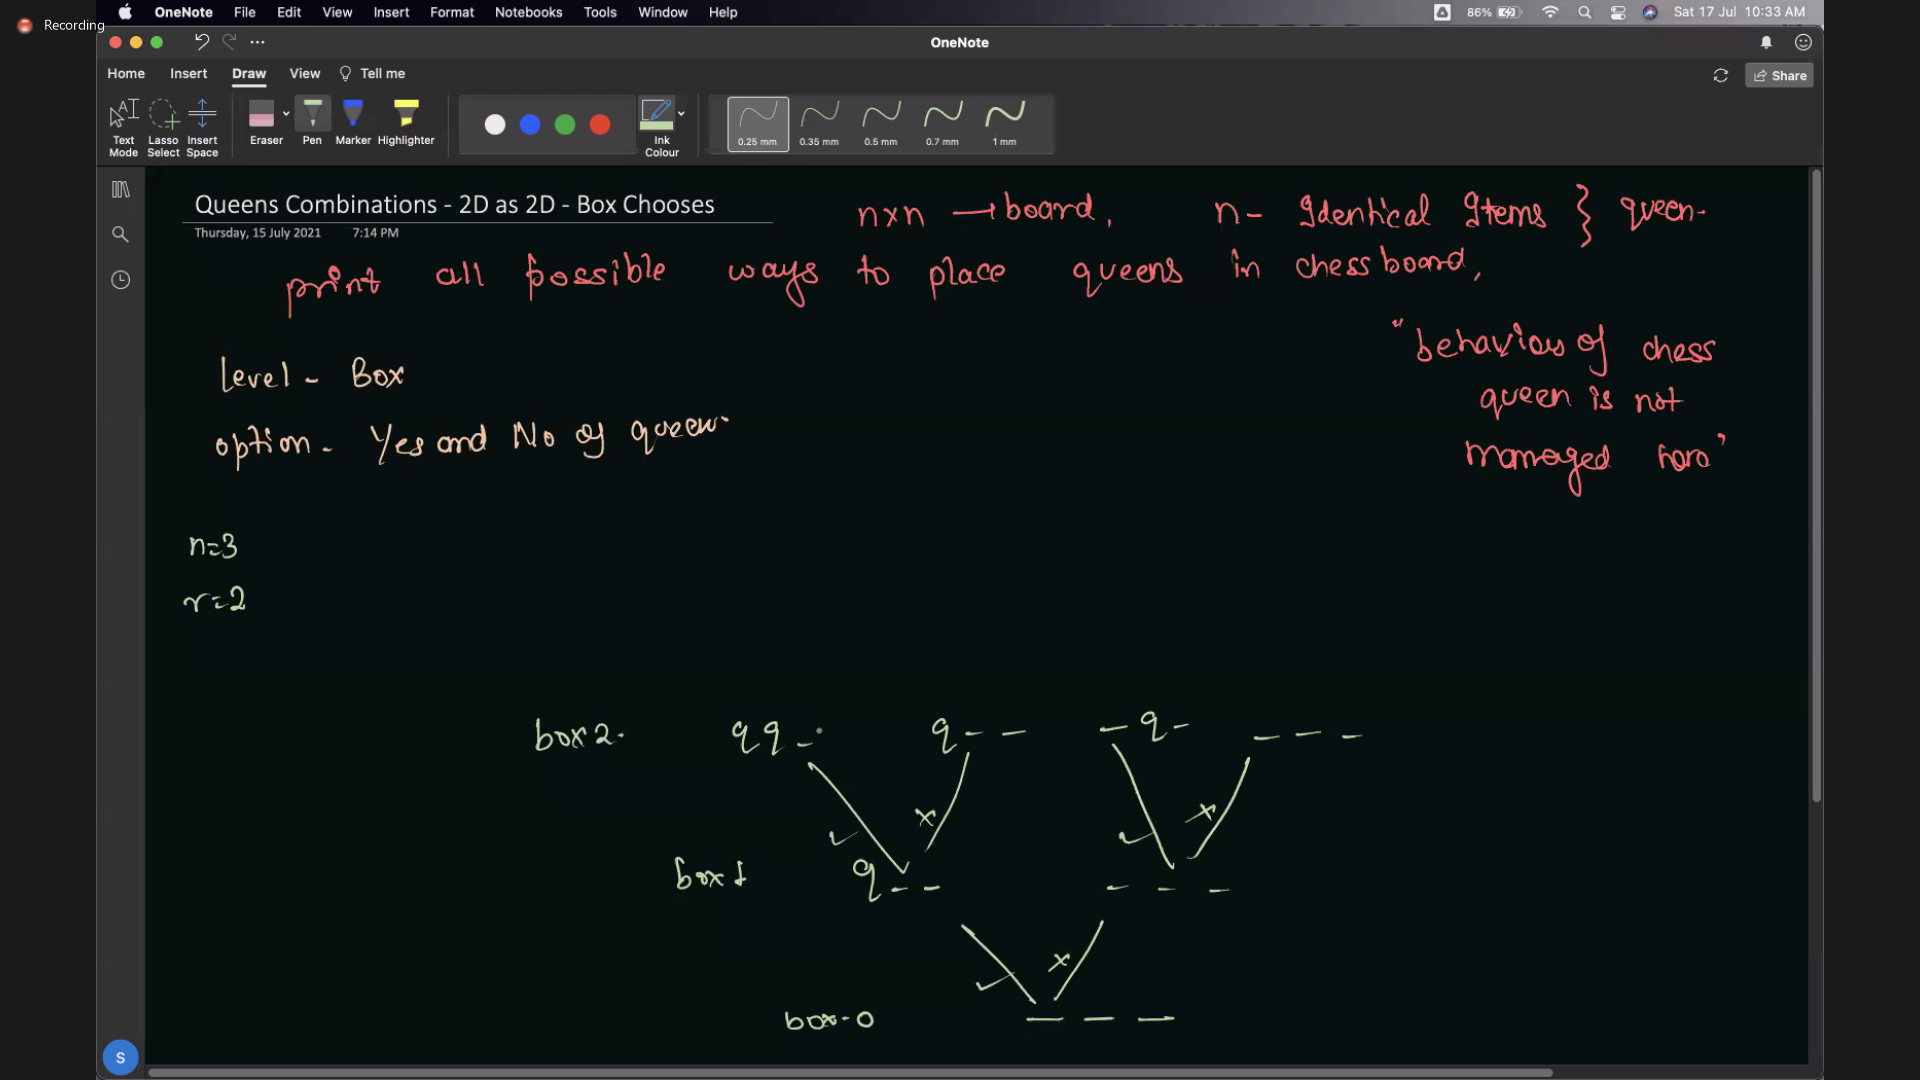 Recording
OneNote File Edit View Insert Format Notebooks Tools Window Help 86% Sat 17 Jul 10:33 AM
OneNote
Home Insert Draw View Tell me Share
Text Mode Lasso Select Insert Space Eraser Pen Marker Highlighter Ink Colour 0.25 mm 0.35 mm 0.5 mm 0.7 mm 1 mm
Queens Combinations - 2D as 2D - Box Chooses
Thursday, 15 July 2021 7:14 PM
nxn → board, n - Identical Items } queen.
print all possible ways to place queens in chessboard,
level - Box
option - Yes and No of queen.
"behaviour of chess
queen is not
managed here"
n=3
r=2
box 2. q q - q - - - q - - - -
✓ x ✓ x
box 1 q - - - - -
✓ x
box - 0 - - -
S